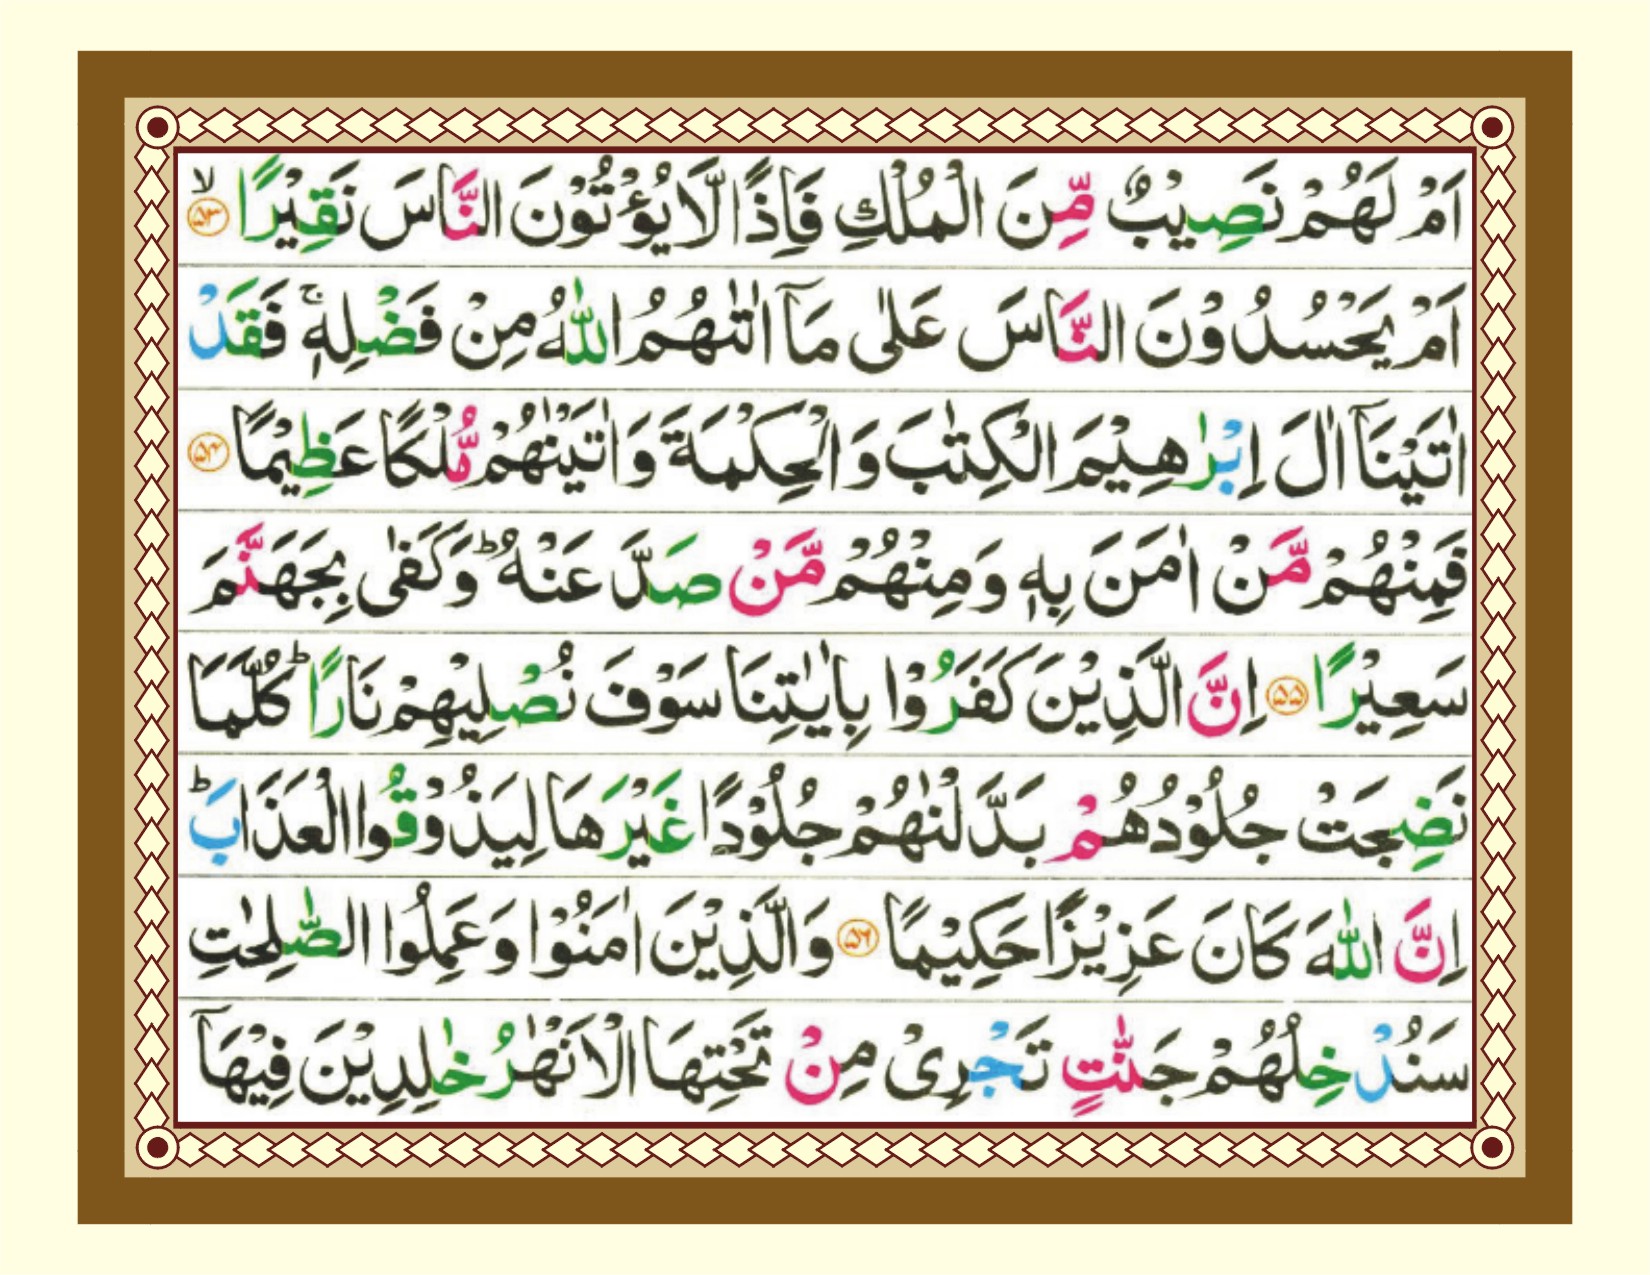 اَمْ لَهُمْ نَصِيْبٌ مِّنَ الْمُلْكِ فَاِذًا لَّا يُؤْتُوْنَ النَّاسَ نَقِيْرًا ۙ﴿۵۳﴾
اَمْ يَحْسُدُوْنَ النَّاسَ عَلٰى مَاۤ اٰتٰىهُمُ اللّٰهُ مِنْ فَضْلِهٖ ۚ فَقَدْ
اٰتَيْنَاۤ اٰلَ اِبْرٰهِيْمَ الْكِتٰبَ وَالْحِكْمَةَ وَاٰتَيْنٰهُمْ مُّلْكًا عَظِيْمًا ﴿۵۴﴾
فَمِنْهُمْ مَّنْ اٰمَنَ بِهٖ وَمِنْهُمْ مَّنْ صَدَّ عَنْهُ ؕ وَكَفٰى بِجَهَنَّمَ
سَعِيْرًا ﴿۵۵﴾ اِنَّ الَّذِيْنَ كَفَرُوْا بِاٰيٰتِنَا سَوْفَ نُصْلِيْهِمْ نَارًا ؕ كُلَّمَا
نَضِجَتْ جُلُوْدُهُمْ بَدَّلْنٰهُمْ جُلُوْدًا غَيْرَهَا لِيَذُوْقُوا الْعَذَابَ ؕ
اِنَّ اللّٰهَ كَانَ عَزِيْزًا حَكِيْمًا ﴿۵۶﴾ وَالَّذِيْنَ اٰمَنُوْا وَعَمِلُوا الصّٰلِحٰتِ
سَنُدْخِلُهُمْ جَنّٰتٍ تَجْرِىْ مِنْ تَحْتِهَا الْاَنْهٰرُ خٰلِدِيْنَ فِيْهَاۤ